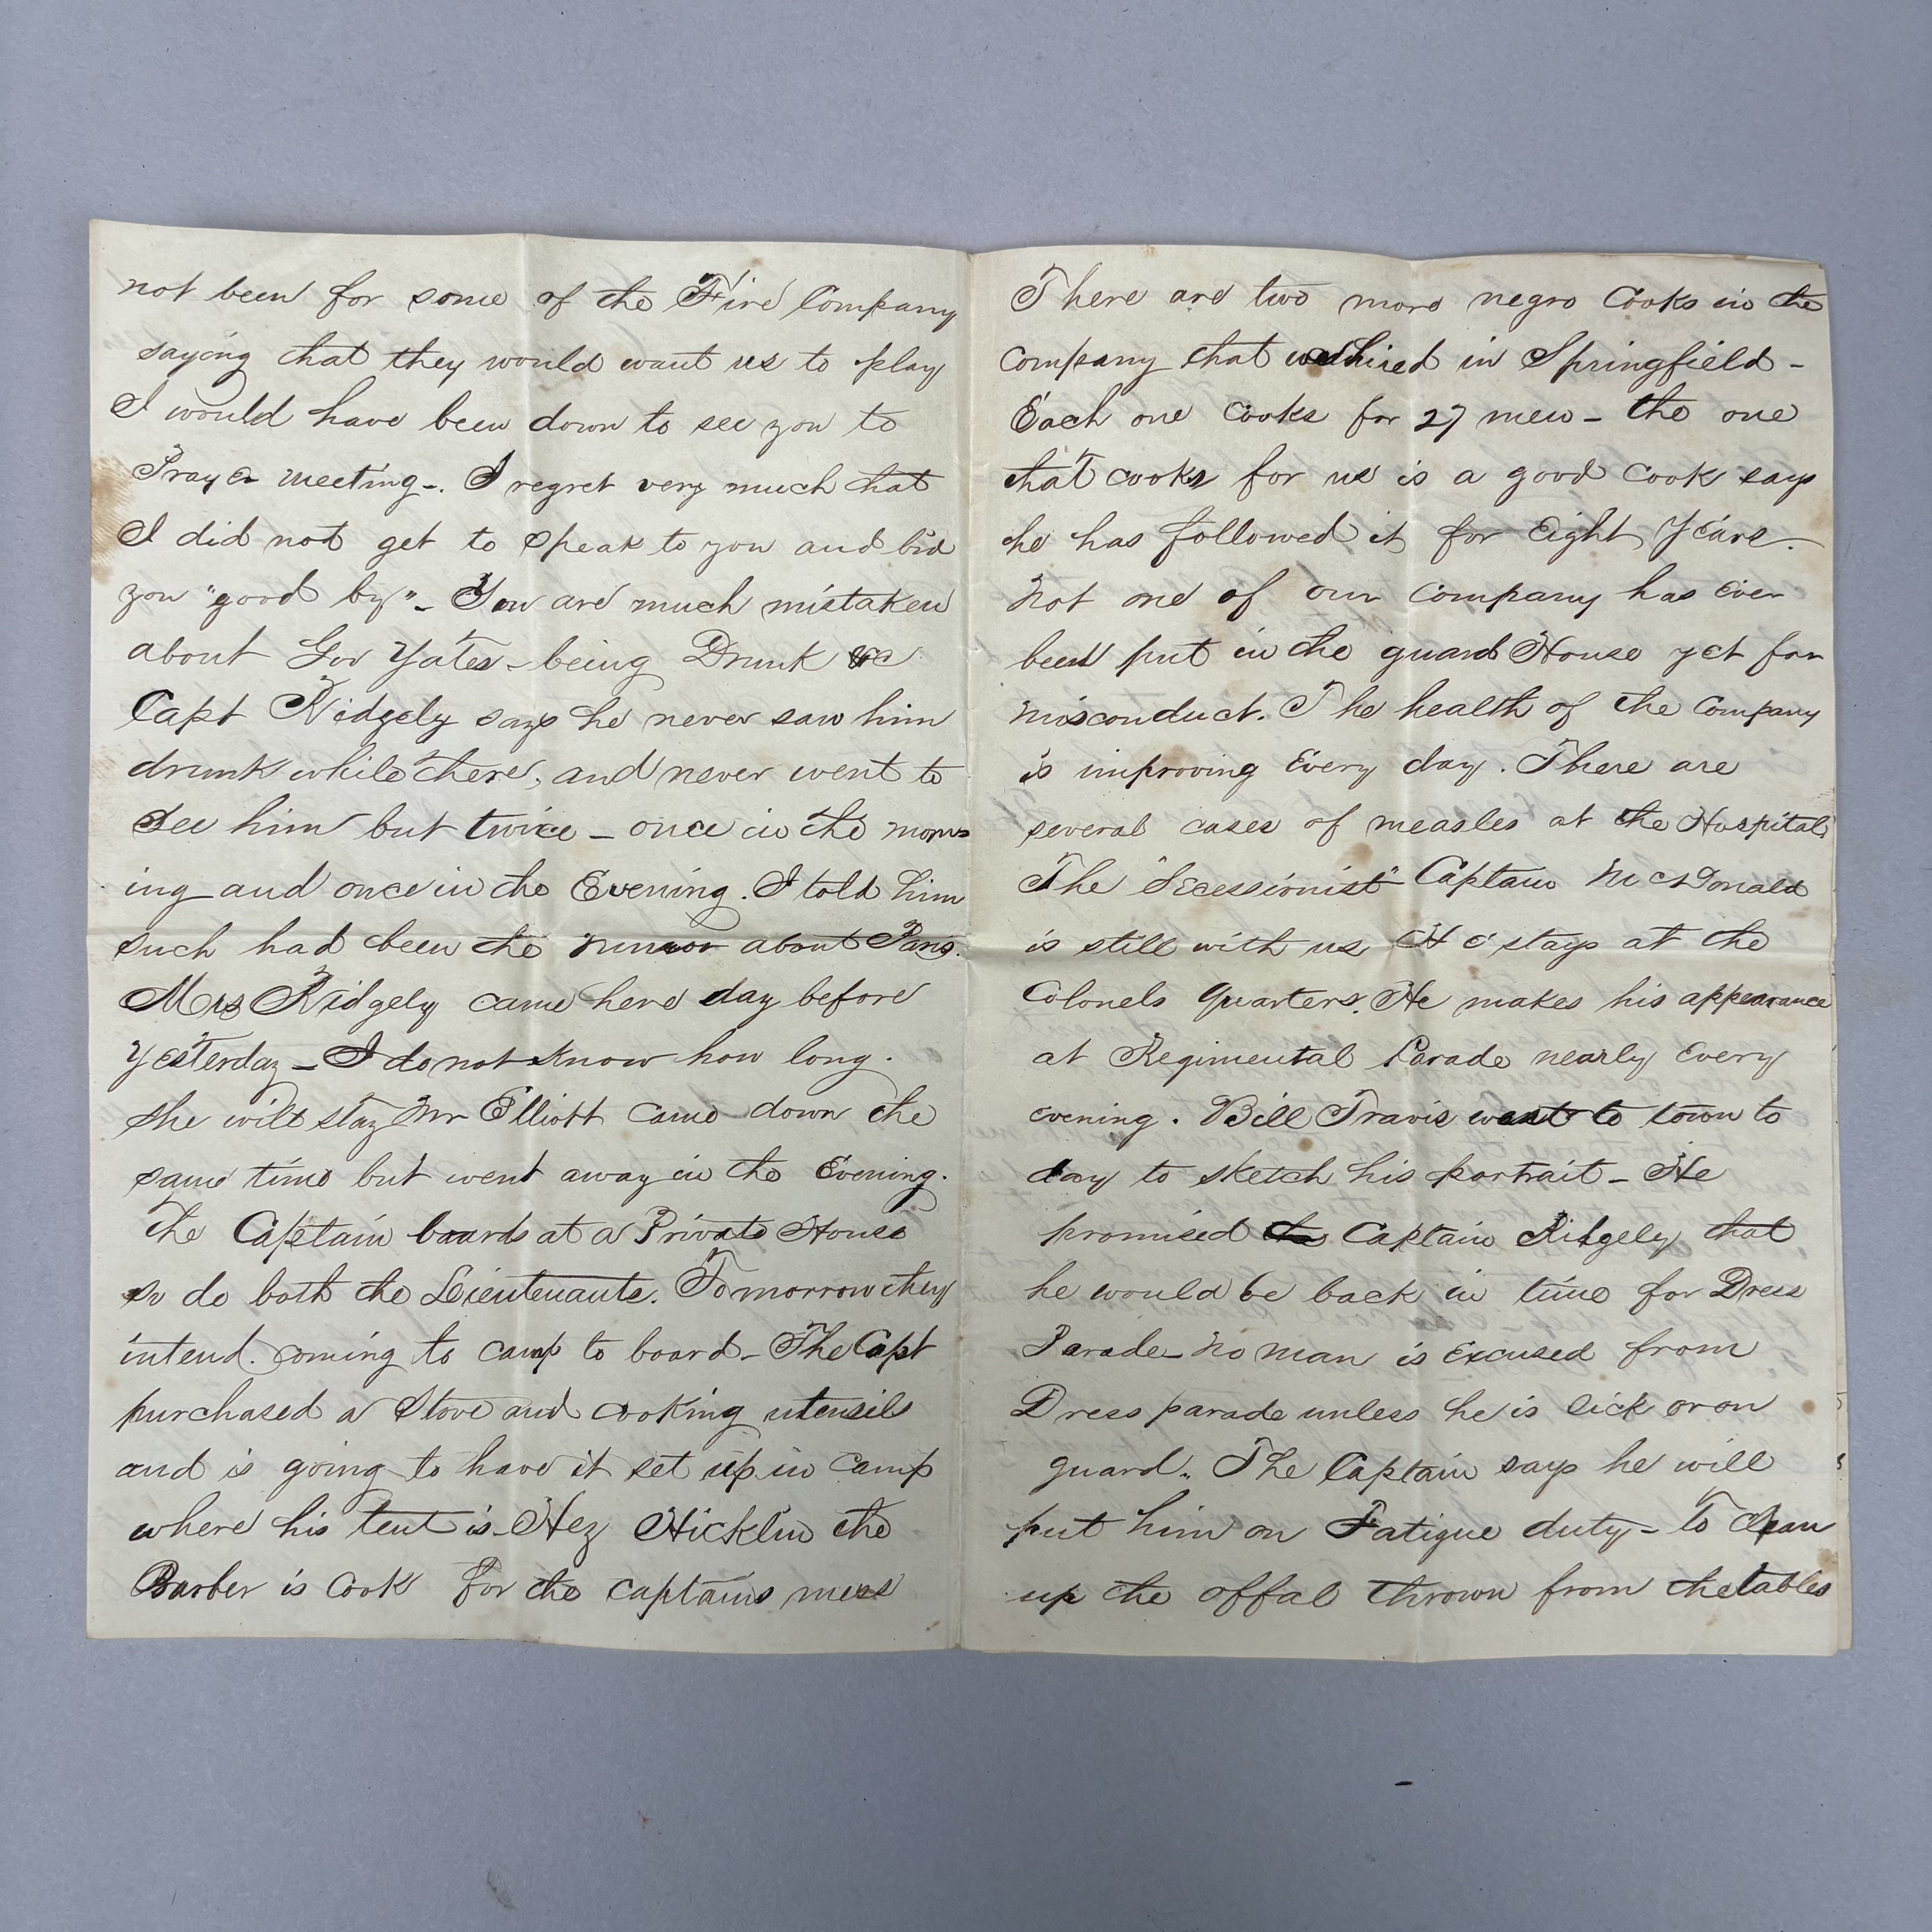 not been for some of the Fire Company
saying that they would want us to play
I would have been down to see you to
Prayer meeting-. I regret very much that
I did not get to speak to you and bid
you "good by" - You are much mistaken
about Gov Yates - being Drunk &c
Capt Ridgely says he never saw him
drunk while there, and never went to
See him but twice - once in the morn=
ing and once in the Evening. I told him
such had been the rumor about Paris.
Mrs Ridgely came here day before
Yesterday - I do not know how long.
she will stay Mr Elliott came down the
same time but went away in the Evening.
The Captain boards at a Private House
so do both the Lieutenants. Tomorrow they
intend. coming to camp to board - The Capt
purchased a Stove and cooking utensils
and is going to have it set up in Camp
where his tent is - Hez Hicklin the
Barber is Cook for the captains mess
There are two more negro Cooks in the
Company that was hired in Springfield -
Each one Cooks for 27 men - the one
that cooks for us is a good Cook says
he has followed it for Eight Years.
Not one of our Company has Ever
been put in the guard House yet for
Misconduct. The health of the Company
is improving Every day. There are
several cases of measles at the Hospital
The "Secessionist" Captain McDonald
is still with us He stays at the
Colonels Quarters. He makes his appearance
at Regimental Parade nearly Every
evening. Bill Travis went to town to
day to sketch his portrait - He
promised Captain Ridgely that
he would be back in time for Dress
Parade - No man is Excused from
Dress parade unless he is sick or on
guard. The Captain says he will
put him on Fatigue duty - To Clean
up the offal thrown from the tables